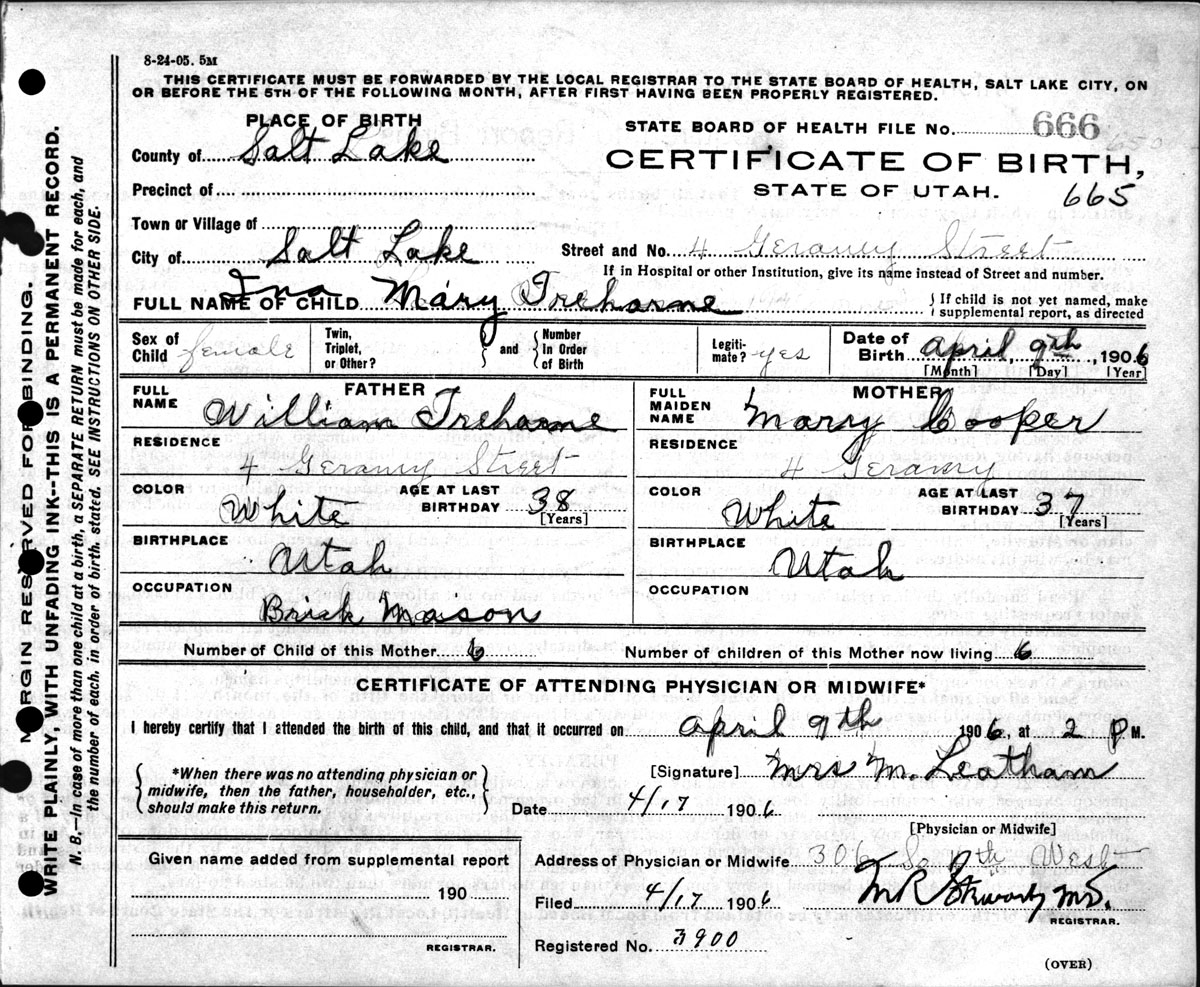 8-24-05. 5M
THIS CERTIFICATE MUST BE FORWARDED BY THE LOCAL REGISTRAR TO THE STATE BOARD OF HEALTH, SALT LAKE CITY, ON
OR BEFORE THE 5TH OF THE FOLLOWING MONTH, AFTER FIRST HAVING BEEN PROPERLY REGISTERED.
PLACE OF BIRTH
County of Salt Lake
Precinct of
Town or Village of
City of Salt Lake
STATE BOARD OF HEALTH FILE No. 666 650
CERTIFICATE OF BIRTH,
STATE OF UTAH. 665
Street and No. 4 Street
If in Hospital or other Institution, give its name instead of Street and number.
FULL NAME OF CHILD Ina Mary Treharne
If child is not yet named, make
supplemental report, as directed
Sex of Child female
Twin, Triplet, or Other?
and Number In Order of Birth
Legiti-mate? yes
Date of Birth April, 9th, 1906
[Month] [Day] [Year]
FATHER
FULL NAME William Treharne
RESIDENCE
4 Street
COLOR White
AGE AT LAST BIRTHDAY 38
[Years]
BIRTHPLACE
Utah
OCCUPATION
Brick Mason
MOTHER
FULL MAIDEN NAME Mary Cooper
RESIDENCE
4
COLOR White
AGE AT LAST BIRTHDAY 37
[Years]
BIRTHPLACE
Utah
OCCUPATION
Number of Child of this Mother 6
Number of children of this Mother now living 6
CERTIFICATE OF ATTENDING PHYSICIAN OR MIDWIFE*
I hereby certify that I attended the birth of this child, and that it occurred on April 9th 1906, at 2 P M.
*When there was no attending physician or
midwife, then the father, householder, etc.,
should make this return.
[Signature] Mrs M. Leatham
Date 4/17 1906
[Physician or Midwife]
Given name added from supplemental report
190
REGISTRAR.
Address of Physician or Midwife 306 So 7th West
Filed 4/17 1906
REGISTRAR.
Registered No. 3900
(OVER)
MARGIN RESERVED FOR BINDING.
WRITE PLAINLY, WITH UNFADING INK--THIS IS A PERMANENT RECORD.
N. B.—In case of more than one child at a birth, a SEPARATE RETURN must be made for each, and
the number of each, in order of birth, stated. SEE INSTRUCTIONS ON OTHER SIDE.